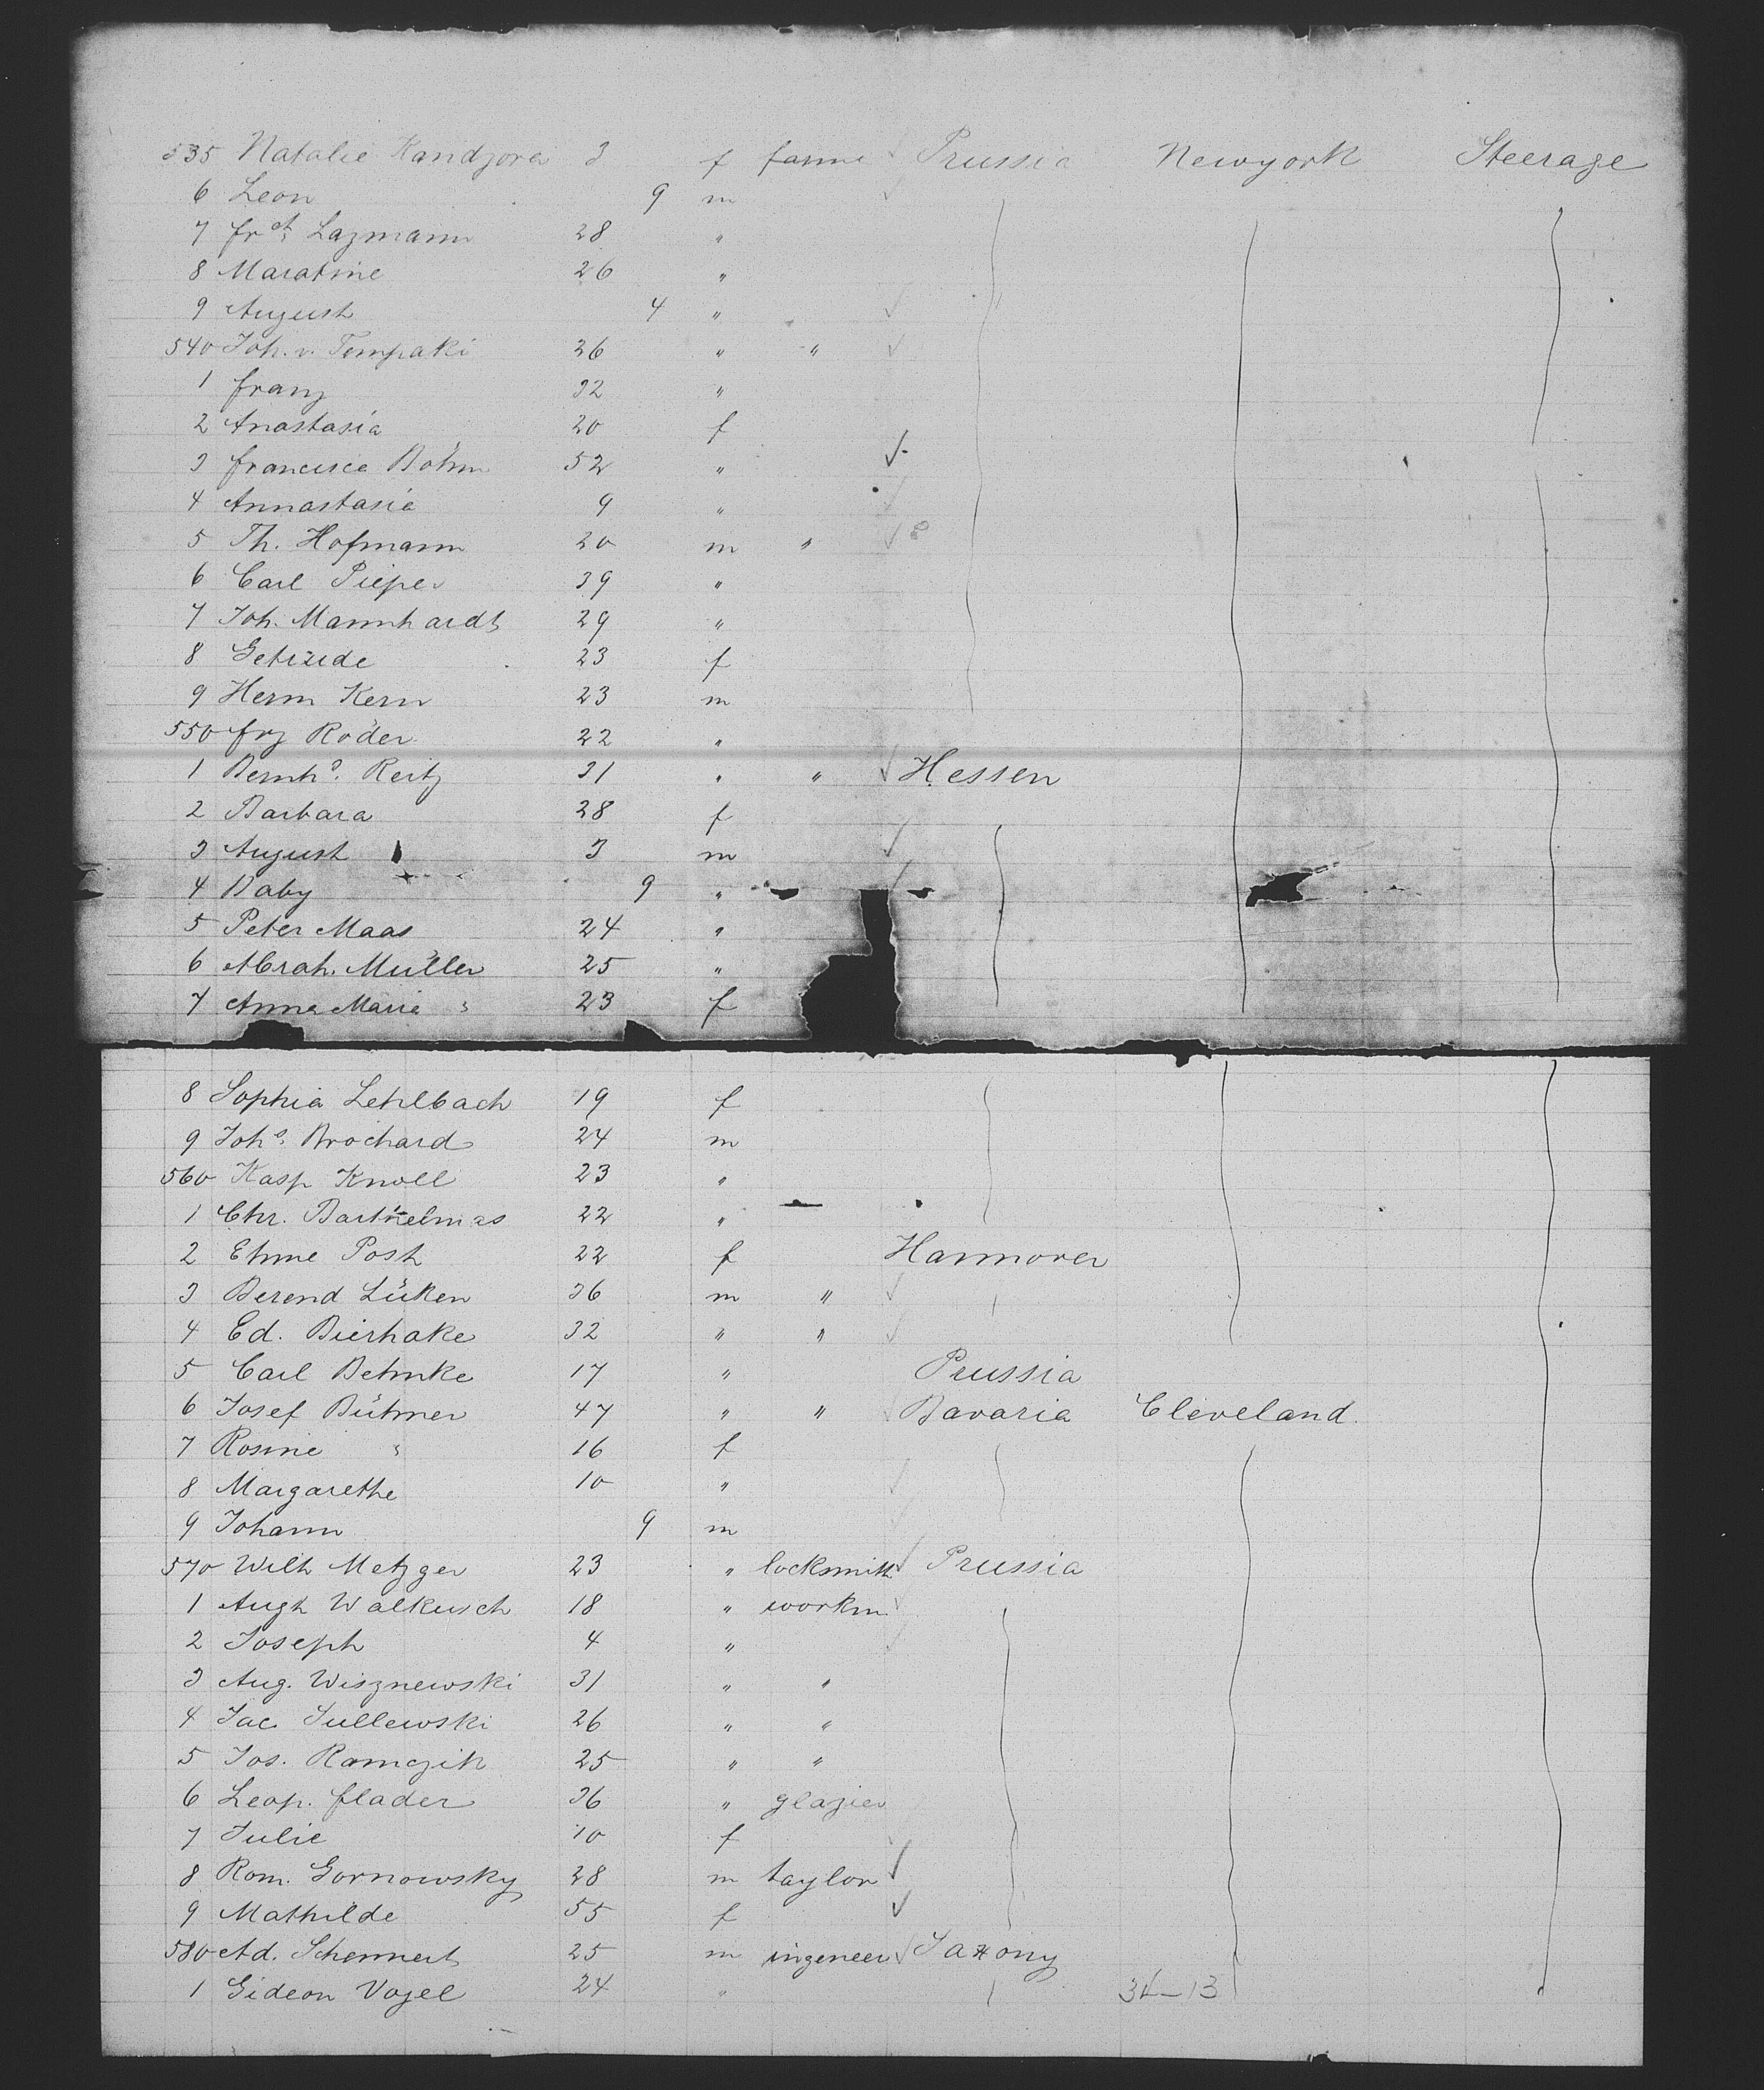 535 Natalie Kandzora 3 f farme Prussia Newyork Steerage
6 Leon 9 m
7 frdr Lazmann 28 "
8 26 "
9 August 4 "
540 Joh. v. Tempski 36 " "
1 franz 32 "
2 Anastasia 20 f
3 francisca Böhm 52 "
4 Annastasia 9 "
5 Th. Hofmann 20 m "
6 Carl Pieper 39 "
7 Joh. Mannhardt 29 "
8 Getrude 23 f
9 Herm Kern 23 m
550 frz Röder 22 "
1 Bernhd. Reitz 31 " " Hessen
2 Barbara 28 f
3 August 3 m
4 Baby 9 "
5 Peter Maas 24 "
6 Abrah. Müller 25 "
7 Anna Maria " 23 f
8 Sophia Lehlbach 19 f
9 Johs. Brochard 24 m
560 Kasp Knoll 23 "
1 Chr. Barthelmas 22 "
2 Ehme Post 22 f Hannover
3 Berend Lüken 36 m "
4 Ed. Bierhake 32 " "
5 Carl Behnke 17 " Prussia
6 Josef Bühner 47 " " Bavaria Cleveland
7 Rosine " 16 f
8 Margarethe 10 "
9 Johann 9 m
570 Wilh Metzger 23 " locksmith Prussia
1 Augh Walkusch 18 " workm
2 Joseph 4 "
3 Aug. Wisznewski 31 " "
4 Jac. Sullewski 26 " "
5 Jos. Ramczik 25 " "
6 Leop. flader 36 " glazier
7 Julie 10 f
8 Rom. Gornowsky 28 m taylor
9 Mathilde 55 f
580 Ad. Schennert 25 m ingeneer Saxony
1 Gideon Vogel 24 " 34-13